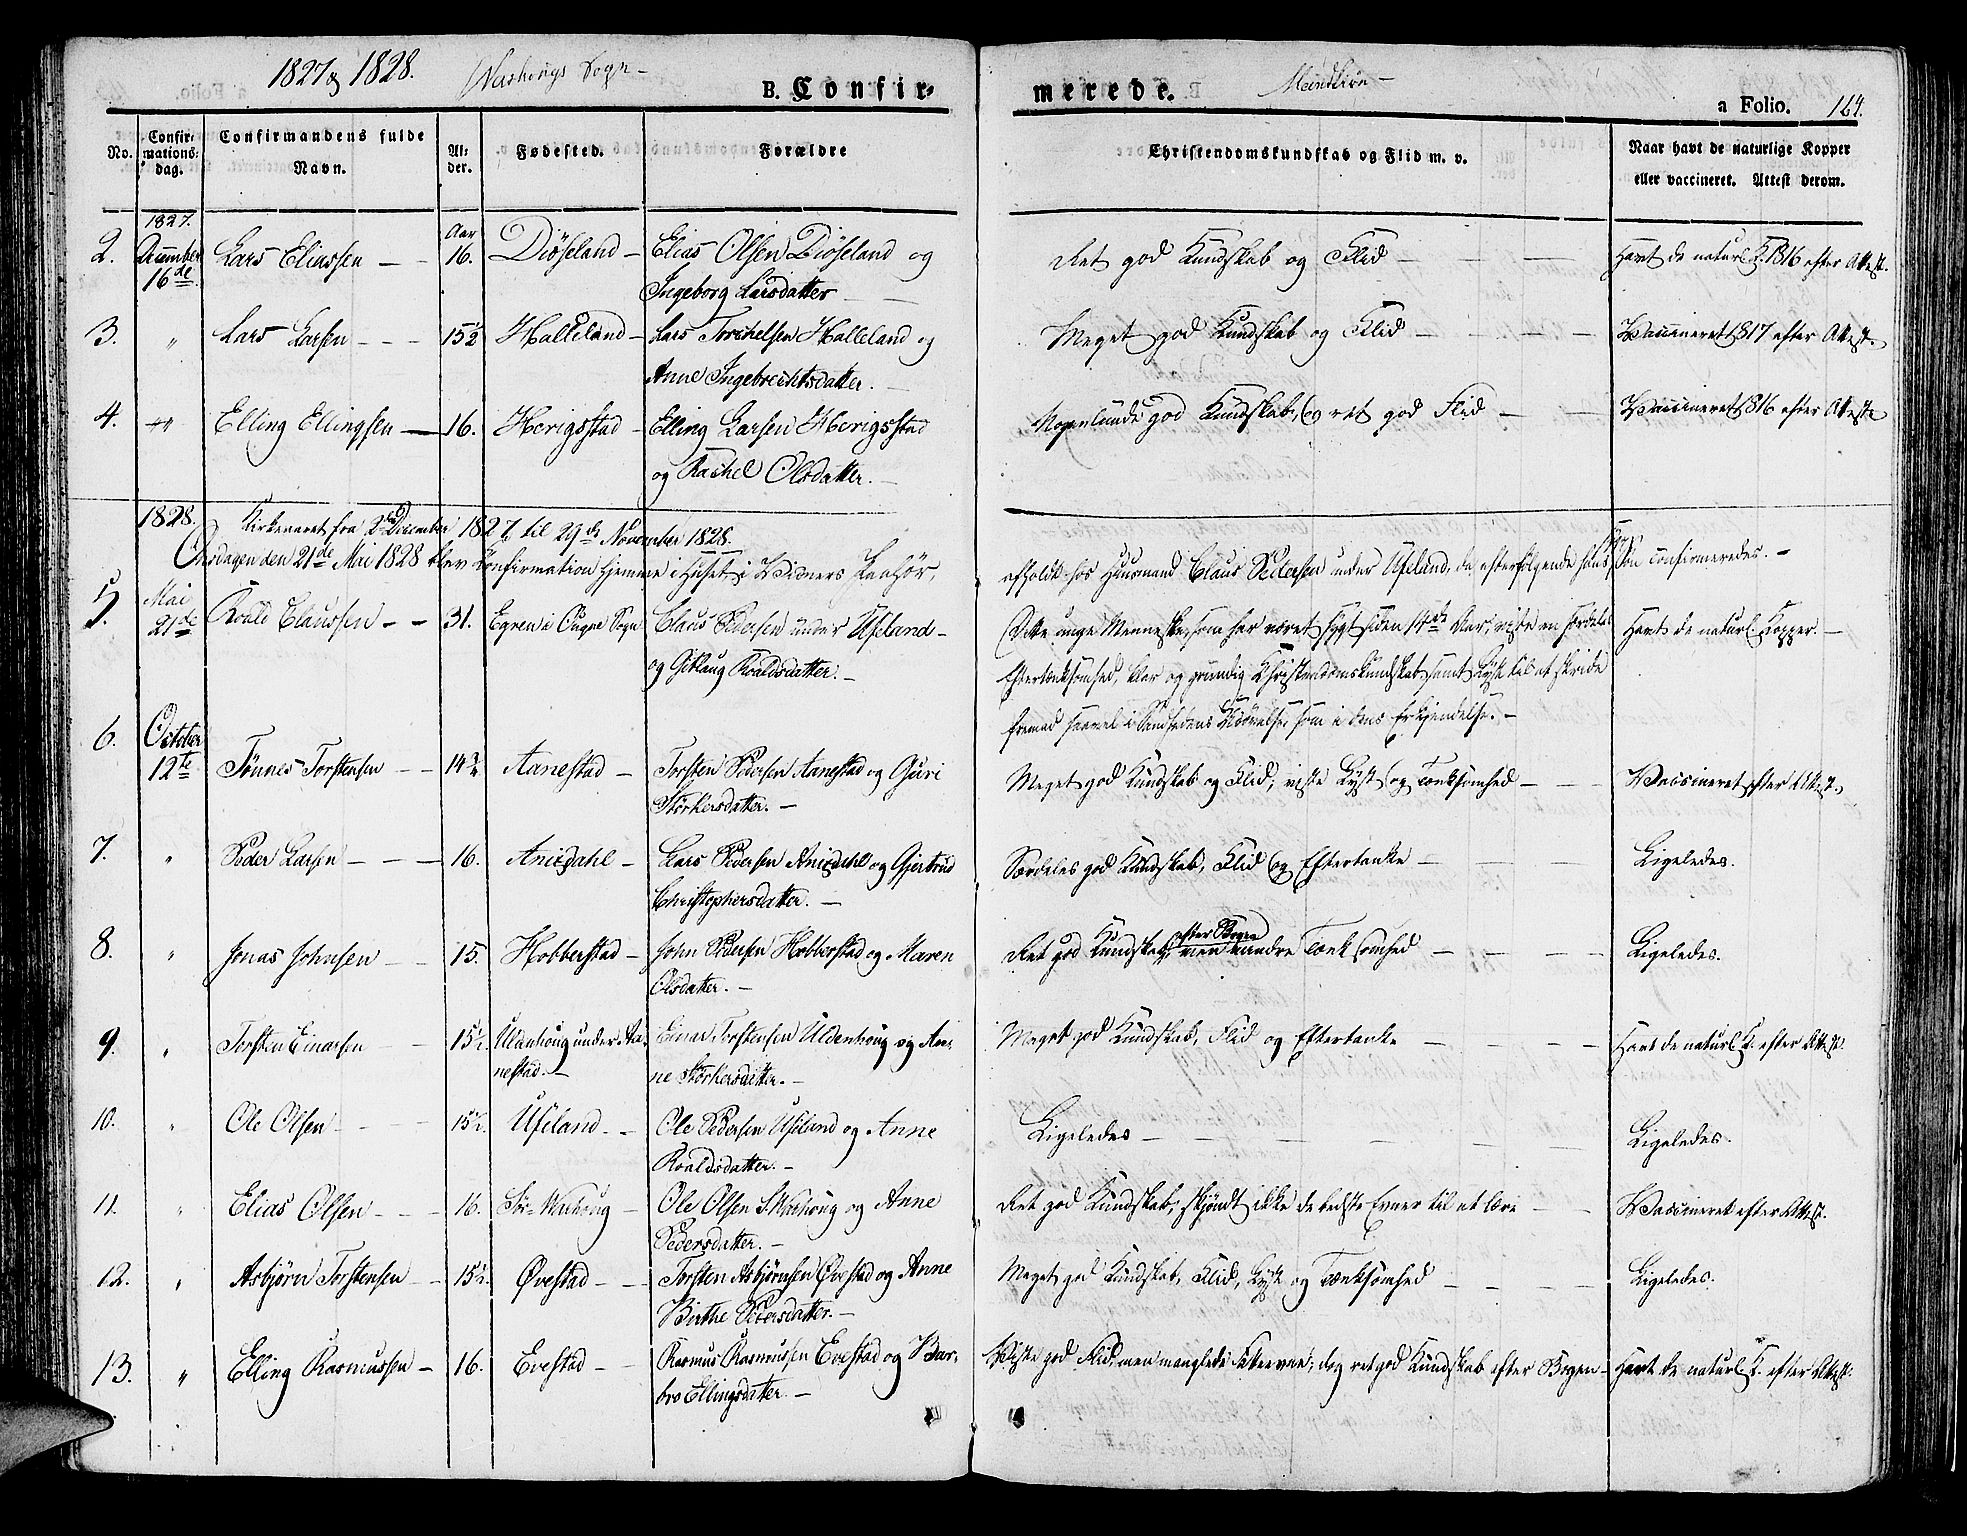 1827 & 1828. Warhougs Sogn —
B. Confir=
No. Confir=mations=dag. Confirmandens fulde Navn. Al=der. Fødested. Forældre
1827. Aar
2. December 16de Lars Eliassen — — 16. Diöseland — Elias Olsen Diöseland og
Ingeborg Larsdatter —
3. " Lars Larsen — — — 15½ Halleland — Lars Torkelsen Halleland og
Anne Ingebrechtsdatter. —
4. " Elling Ellingsen — 16. Herigstad — Elling Larsen Herigstad
og Rachel Olsdatter. —
1828. Kirkeaaret fra 2den December 1827 til 29de November 1828.
Onsdagen den 21de Mai 1828 blev Confirmation hjemme i Huset i Vidners Paahör,
5. Mai 21de Roald Claussen — — 31. Egren i Ougne Sogn Claus Pedersen under Ueland —
og Roaldsdatter. —
6. October 12te Tönnes Torstensen — — 14¾ Aanestad — Torsten Pedersen Aanestad og Guri
Störkersdatter. —
7. " Peder Larsen — — — 16. Anisdahl — Lars Pedersen Anisdahl og Gjertrud
Christophersdatter. —
8. " Jonas Johnsen — — 15. Hobberstad — John Pedersen Hobberstad og Maren
Olsdatter. —
9. " Torsten Einarsen — — 15½. Uldenhoug under Aa= Einar Torstensen Uldenhoug og An=
nestad. — ne Störkersdatter. —
10. " Ole Olsen — — 15½. Ueland — Ole Pedersen Ueland og Anne
Roaldsdatter. —
11. " Elias Olsen — — — 16. Sör-Warhoug — Ole Olsen S. Warhoug og Anne
Pedersdatter. —
12. " Asbjörn Torstensen — 15½. Øvestad — — Torsten Asbjörnsen Øvestad og Anne
Birthe Pedersdatter. —
13. " Elling Rasmussen — 16. Evestad — — Rasmus Rasmussen Evestad og Bar=
bro Ellingsdatter. —
merede. Mandkiön —
a Folio. 164.
Christendomskundskab og Flid m. v. Naar havt de naturlige Kopper
eller vaccineret. Attest derom.
Ret god Kundskab og Flid — — — Havt de naturl. K. 1816 efter Attest.
Meget god Kundskab og Flid — — — Vaccineret 1817 efter Attest.
Nogenlunde god Kundskab, og ret god Flid — — Vaccineret 1816 efter Attest
afholdt hos Huusmand Claus Pedersen under Ueland, da efterfølgende hans Søn confirmeredes. —
Dette unge Menneske, som har været sygt siden 14de Aar, viste en særdeles Havt de naturl. Kopper. —
Eftertænksomhed, klar og grundig Christendomskundskab samt Lyst til at skride
fremad saavel i Sandhedens Udøvelse, som i dens Erkjendelse. —
Meget god Kundskab og Flid, viste Lyst og Tænksomhed — — — Vaccineret efter Attest.
Særdeles god Kundskab, Flid og Eftertanke — — — Ligeledes.
efter Bogen
Ret god Kundskab, men mindre Tænksomhed — — — Ligeledes.
Meget god Kundskab, Flid og Eftertanke — — — Havt de naturl. K. efter Attest.
Ligeledes — — — Ligeledes.
Ret god Kundskab, skjøndt ikke de bedste Evner til at lære — — Vaccineret efter Attest.
Meget god Kundskab, Flid, Lyst og Tænksomhed — — — Ligeledes.
Viste god Flid, men manglede Fatteevne; dog ret god Kundskab efter Bogen — Havt de naturl. K. efter Attest.